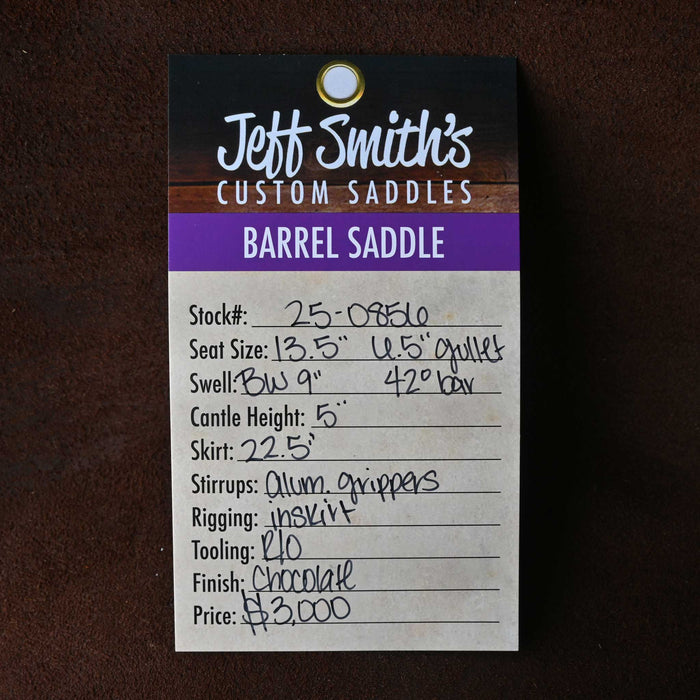 Jeff Smith's
CUSTOM SADDLES
BARREL SADDLE
Stock#: 25-0856
Seat Size: 13.5" 6.5" gullet
Swell: BW 9" 42° bar
Cantle Height: 5"
Skirt: 22.5"
Stirrups: alum. grippers
Rigging: inskirt
Tooling: R/O
Finish: Chocolate
Price: $3,000